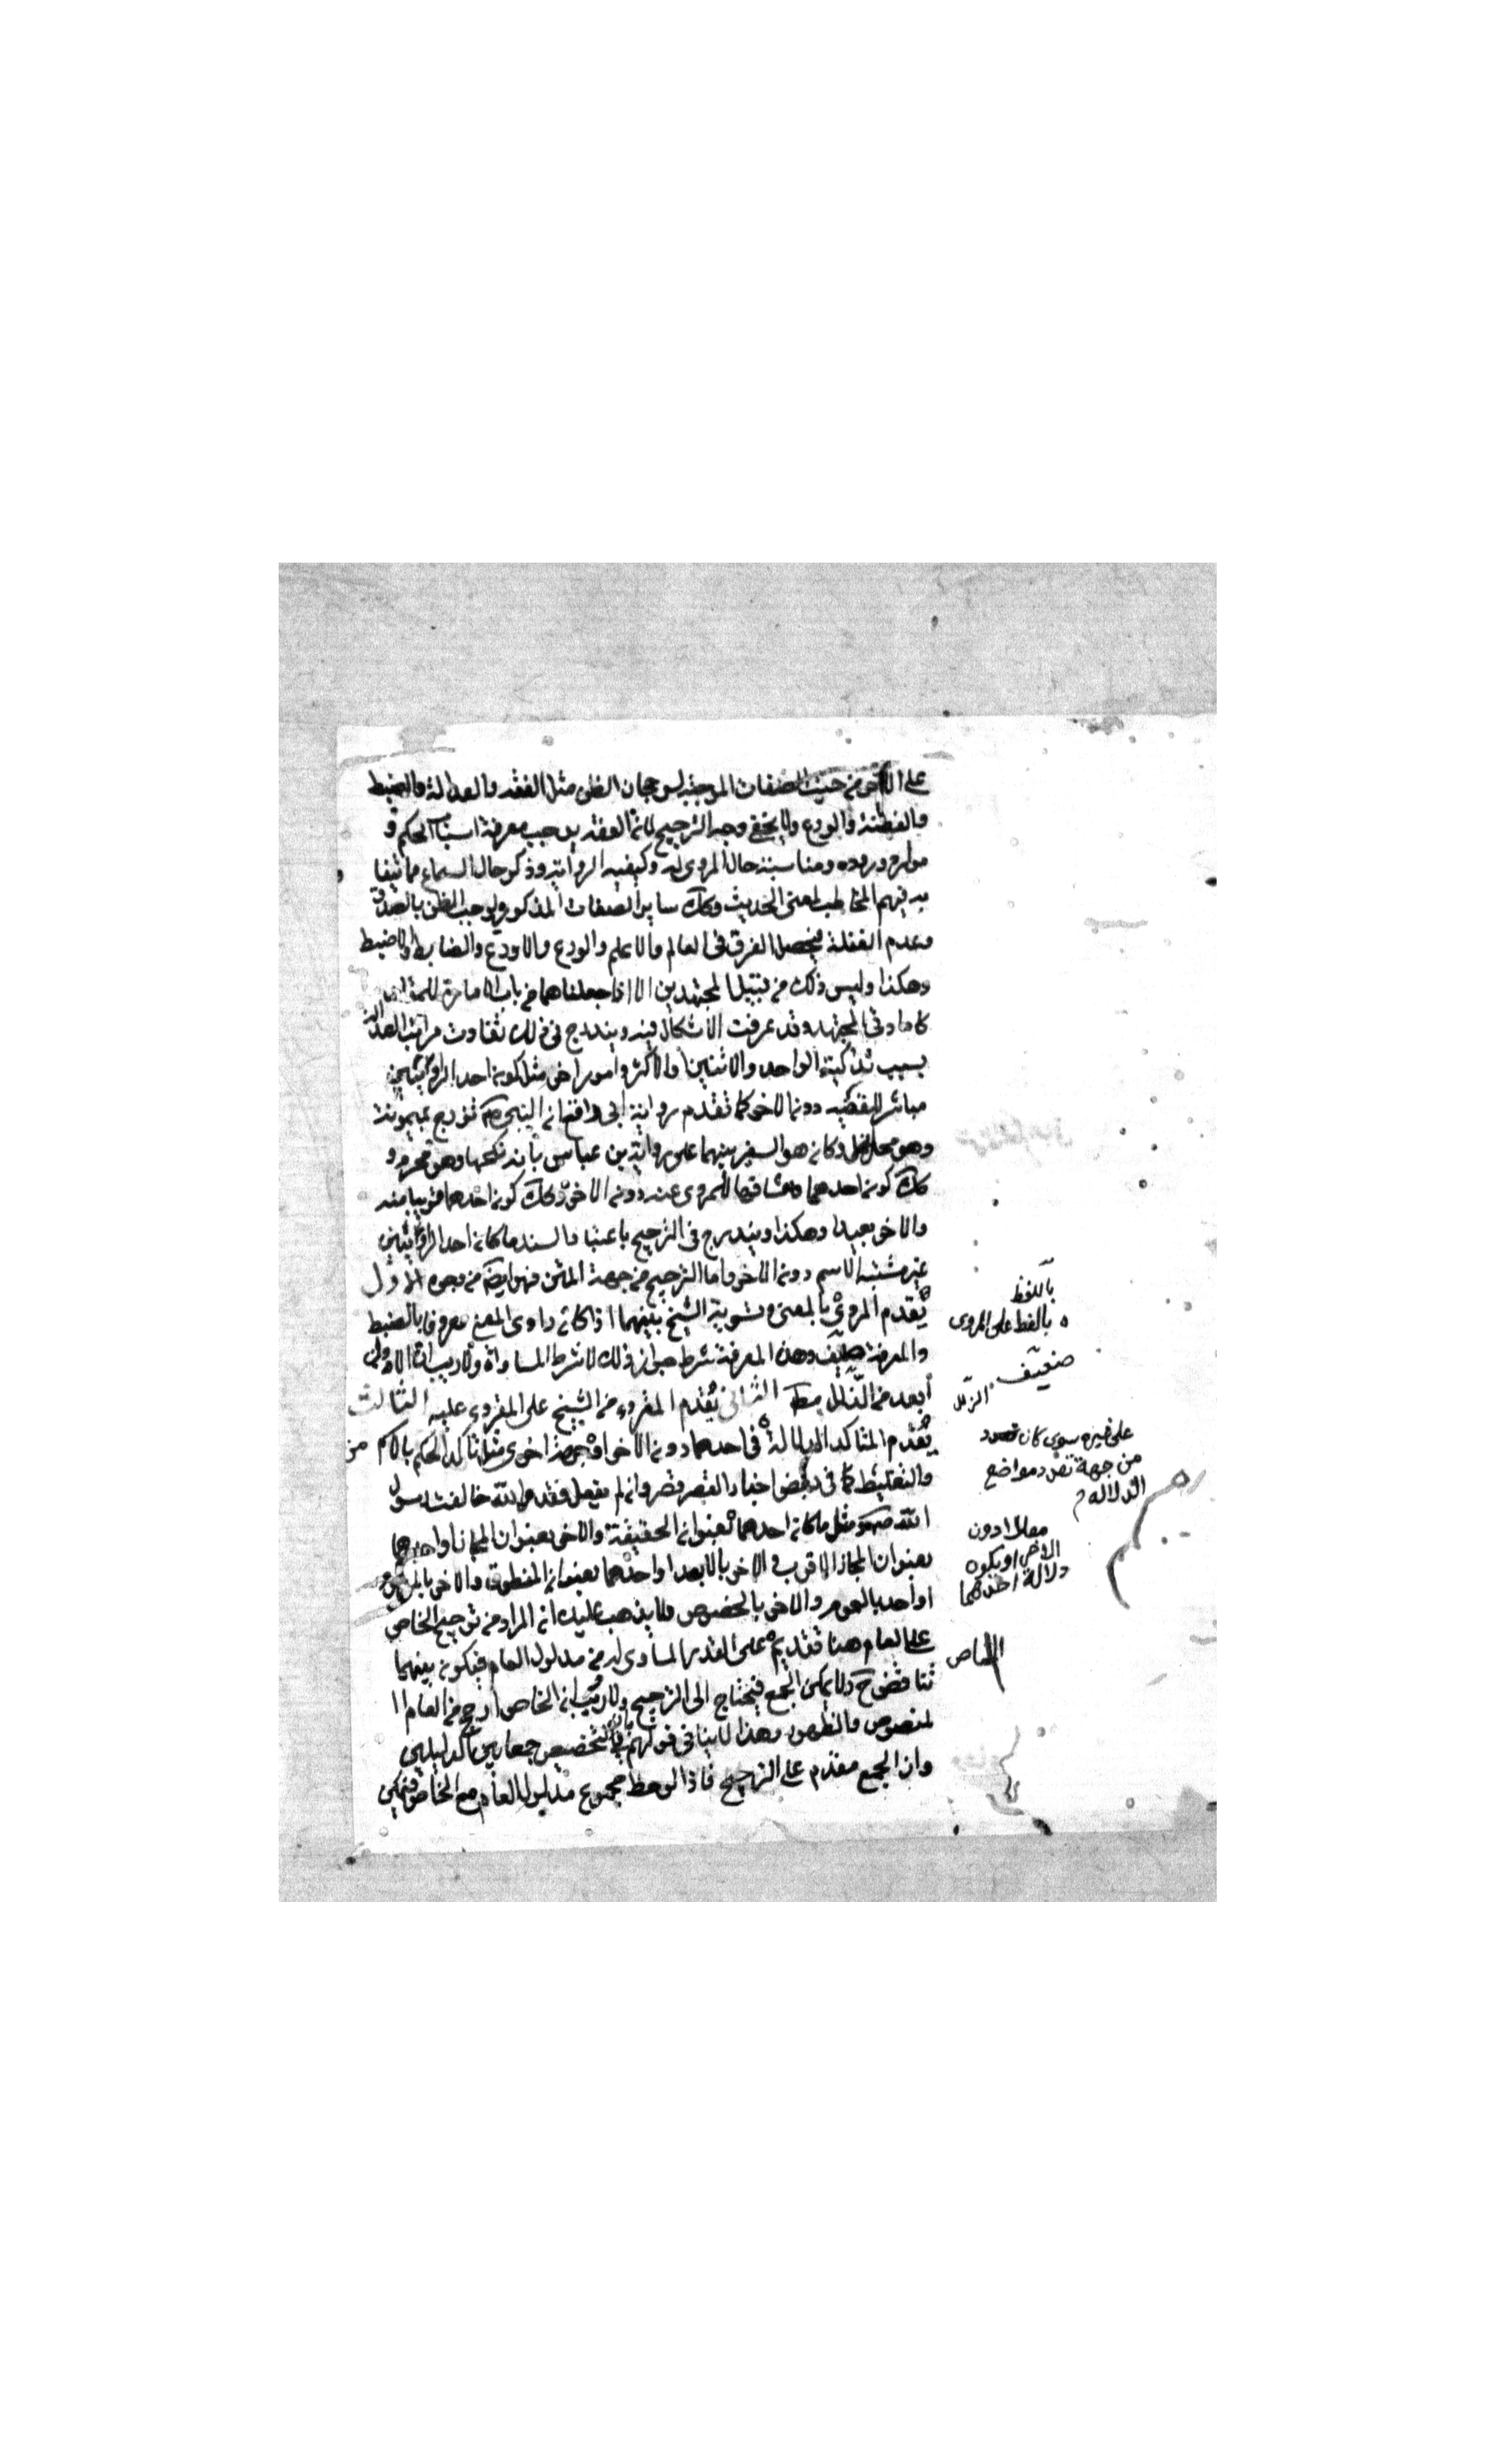 على الاخر من حيث الصفات الموجبة لرجحان الظن مثل الفقه والعدالة والضبط
والفطنة والورع ولا يخفى وجه الترجيح لان الفقه يوجب معرفة اسباب الحكم و
موارد وروده ومناسبة حال المروى له وكيفية الرواية وذكر حال السماع مما يتفا
به فهم المخاطب لمعنى الحديث وكك ساير الصفات المذكورة يوجب الظن بالصدق
وعدم الغفلة فيحصل الفرق فى العالم والاعلم والورع والاورع والضابط والاضبط
وهكذا وليس ذلك من قبيل المجتهدين الا اذا جعلناهما من باب الامارة للمقلد
كامارتى المجتهد وقد عرفت الاشكال فيه ويندرج فى ذلك تفاوت مراتب العدالة
بسبب تذكية الواحد والاثنين والاكثر وامور اخر مثل كون احد الراويين
مباشر للقضية دون الاخر كما تقدم رواية ابى رافع ان النبى ص تزوج بميمونة
وهو محل وكان هو السفير بينهما على رواية بن عباس بانه نكحها وهو محرم و
كك كون احدهما مشافها للمروى عنه دون الاخر وكك كون احدهما قريبا منه
والاخر بعيدا وهكذا ويندرج فى الترجيح باعتبار السند ما كان احد الراويين
غير مشتبه الاسم دون الاخر واما الترجيح من جهة المتن فهو ايضا من وجوه الاول
يقدم المروى بالمعنى وتسوية الشيخ بينهما اذا كان راوى المعنى معروفا بالضبط
والمعرفة ضعيف وهذه المعرفة شرط جواز ذلك لا شرط المساواة ولا ريب ان الاولى
ابعد من الزلل الثانى يقدم المقروء من الشيخ على المقروء عليه الثالث
يقدم المتاكد الدلالة فى احدهما دون الاخر او من جهة اخرى مثل تاكد الحكم بالقسم من
والتغليظ كما فى بعض اخبار القصر قصر وان لم يفعل فقد والله خالفت رسول
الله ص مثل ما كان احدهما بعنوان الحقيقة والاخر بعنوان المجاز او احدهما
بعنوان المجاز الاقرب والاخر بالابعد او احدهما بعنوان المنطوق والاخر بالمفهوم
او احد بالعموم والاخر بالخصوص ولا يذهب عليك ان المراد من ترجيح الخاص
على العام هنا تقديمه على القدر المساوى له من مدلول العام فيكون بينهما
تناقض ح ولا يمكن الجمع فيحتاج الى الترجيح ولا ريب ان الخاص ارجح من العام ا
لمنصوص والظهور وهذا لا ينافى قولهم بان فى التخصيص جمعا بين الدليلين
وان الجمع مقدم على الترجيح فاذا لوحظ مجموع مدلول العام مع الخاص فيمكن
باللفظ
بالفظ على المروى
ضعيف
الزلل
على غيره سوى كان تعدد
من جهة تعدد مواضع
الدلالة
معللا دون
الاخر او يكون
دلالة احدهما
الخاص